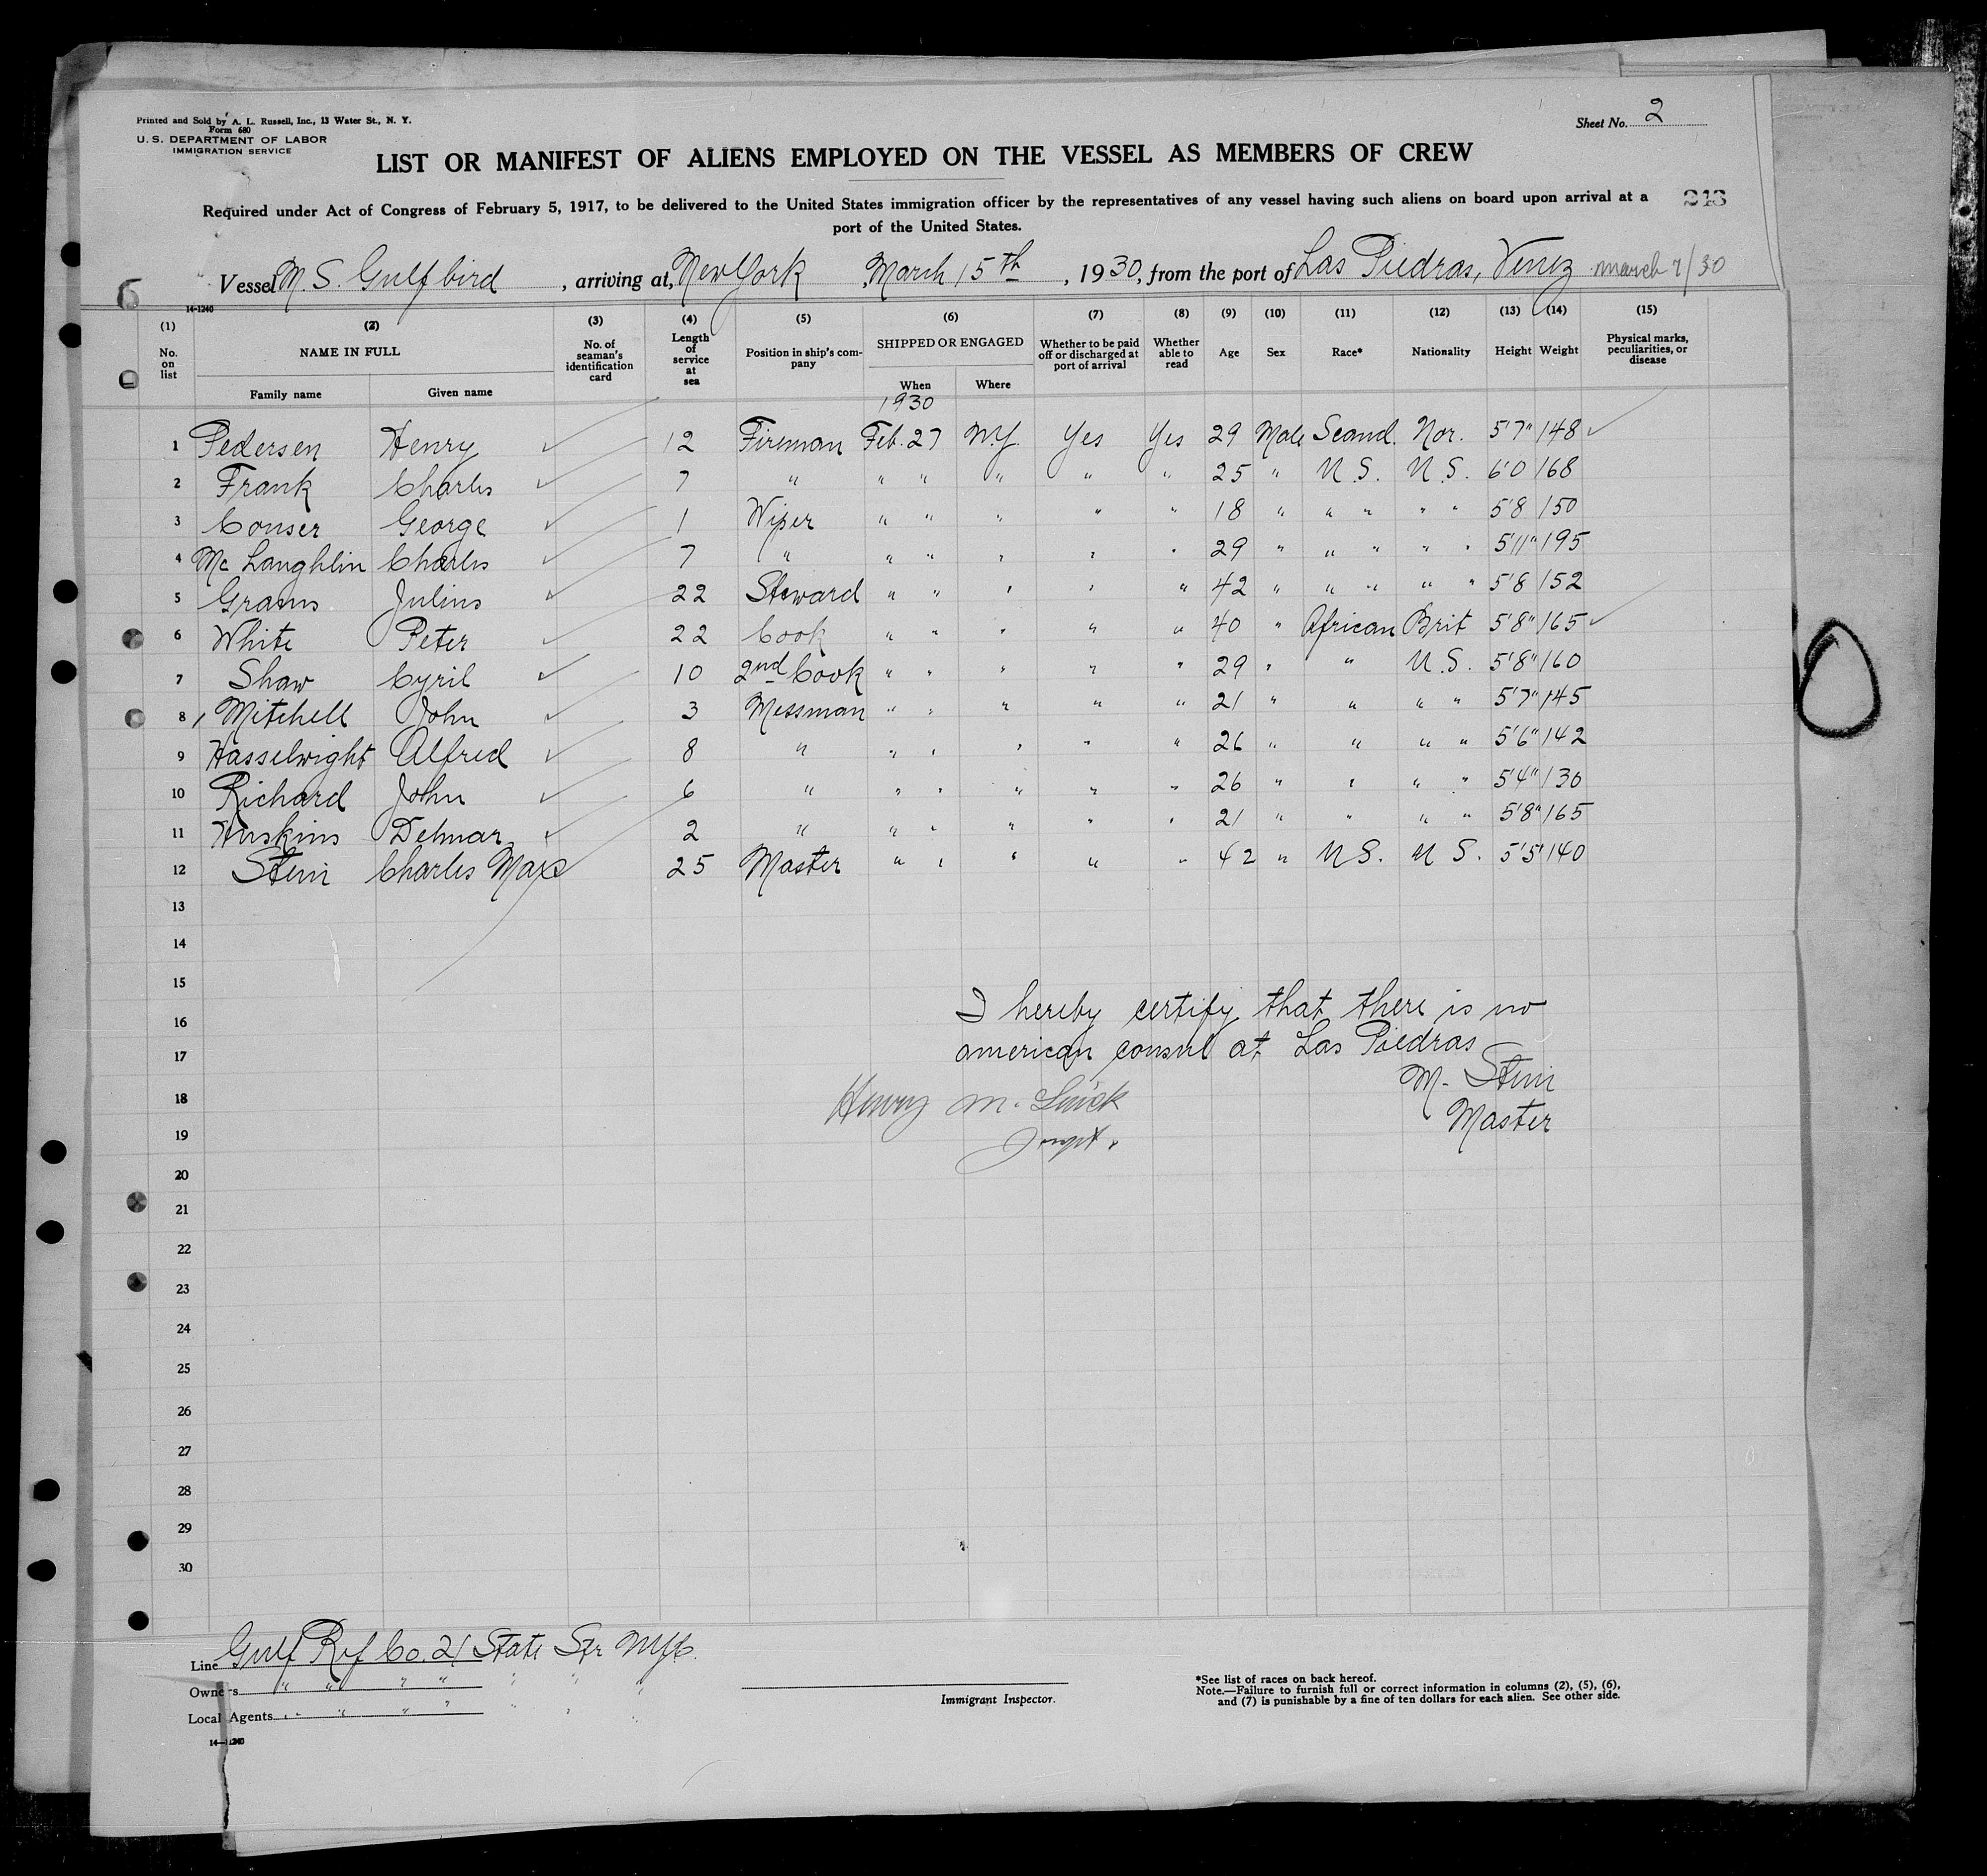 Printed and Sold by A. L. Russell, Inc., 13 Water St., N. Y.
Form 680
U. S. DEPARTMENT OF LABOR
IMMIGRATION SERVICE
Sheet No. 2
LIST OR MANIFEST OF ALIENS EMPLOYED ON THE VESSEL AS MEMBERS OF CREW
Required under Act of Congress of February 5, 1917, to be delivered to the United States immigration officer by the representatives of any vessel having such aliens on board upon arrival at a
port of the United States.
213
6
Vessel M.S. Gulfbird, arriving at, New York, March 15th, 1930, from the port of Las Piedras, Venez March 7/30
14-1240
(1) (2) (3) (4) (5) (6) (7) (8) (9) (10) (11) (12) (13) (14) (15)
No. on list NAME IN FULL No. of seaman's identification card Length of service at sea Position in ship's company SHIPPED OR ENGAGED Whether to be paid off or discharged at port of arrival Whether able to read Age Sex Race* Nationality Height Weight Physical marks, peculiarities, or disease
Family name Given name When Where
1930
1 Pedersen Henry 12 Fireman Feb. 27 N.Y. Yes Yes 29 Male Scand. Nor. 5'7" 148
2 Frank Charles 7 " " " " " " 25 " U.S. U.S. 6'0 168
3 Conser George 1 Wiper " " " " " 18 " " " " " 5'8 150
4 Mc Laughlin Charles 7 " " " " " " 29 " " " " " 5'11" 195
5 Grams Julius 22 Steward " " " " " 42 " " " " " 5'8 152
6 White Peter 22 Cook " " " " " 40 " African Brit 5'8" 165
7 Shaw Cyril 10 2nd Cook " " " " " 29 " " U.S. 5'8" 160
8 Mitchell John 3 Messman " " " " " 21 " " " " 5'7" 145
9 Hasselwight Alfred 8 " " " " " " 26 " " " " 5'6" 142
10 Richard John 6 " " " " " " 26 " " " " 5'4" 130
11 Huskins Delmar 2 " " " " " " 21 " " " " 5'8" 165
12 Stein Charles Max 25 Master " " " " " 42 " U.S. U.S. 5'5" 140
13
14
15
I hereby certify that there is no
16
american consul at Las Piedras
17
M. Stein
18 Henry M.
Master
19 Inspt.
20
21
22
23
24
25
26
27
28
29
30
Line Gulf Ref Co. 21 State Str NYC.
Owners " " " " " " "
Local Agents " " " " " " "
14—1240
Immigrant Inspector.
*See list of races on back hereof.
Note.—Failure to furnish full or correct information in columns (2), (5), (6),
and (7) is punishable by a fine of ten dollars for each alien. See other side.